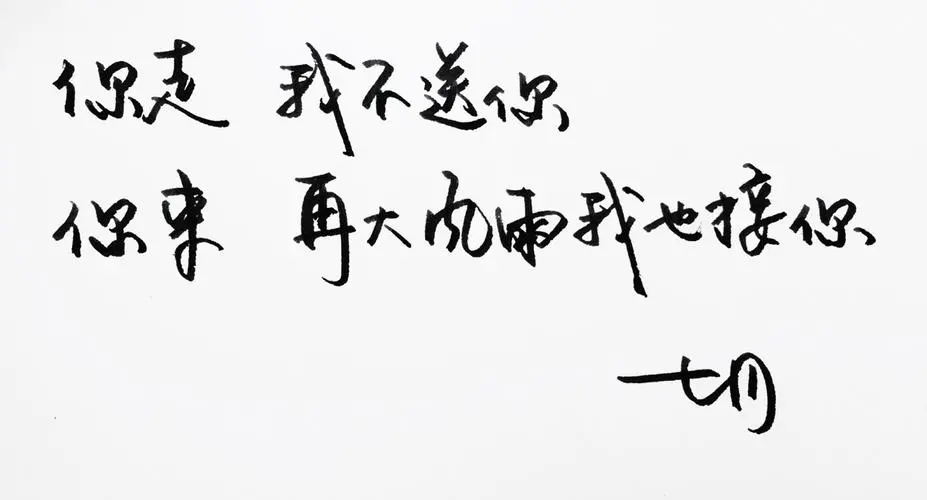 你走 我不送你
你来 再大风雨我也接你
七月